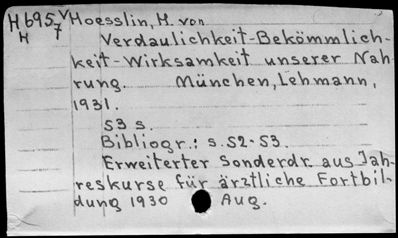 H695v Hoesslin, H. von
H 7
Verdaulichkeit-Bekömmlich-
keit-Wirksamkeit unserer Nah-
rung. München, Lehmann,
1931.
53 s.
Bibliogr.: s.52-53.
Erweiterter Sonderdr. aus Jah-
reskurse für ärztliche Fortbil-
dung 1930 Aug.